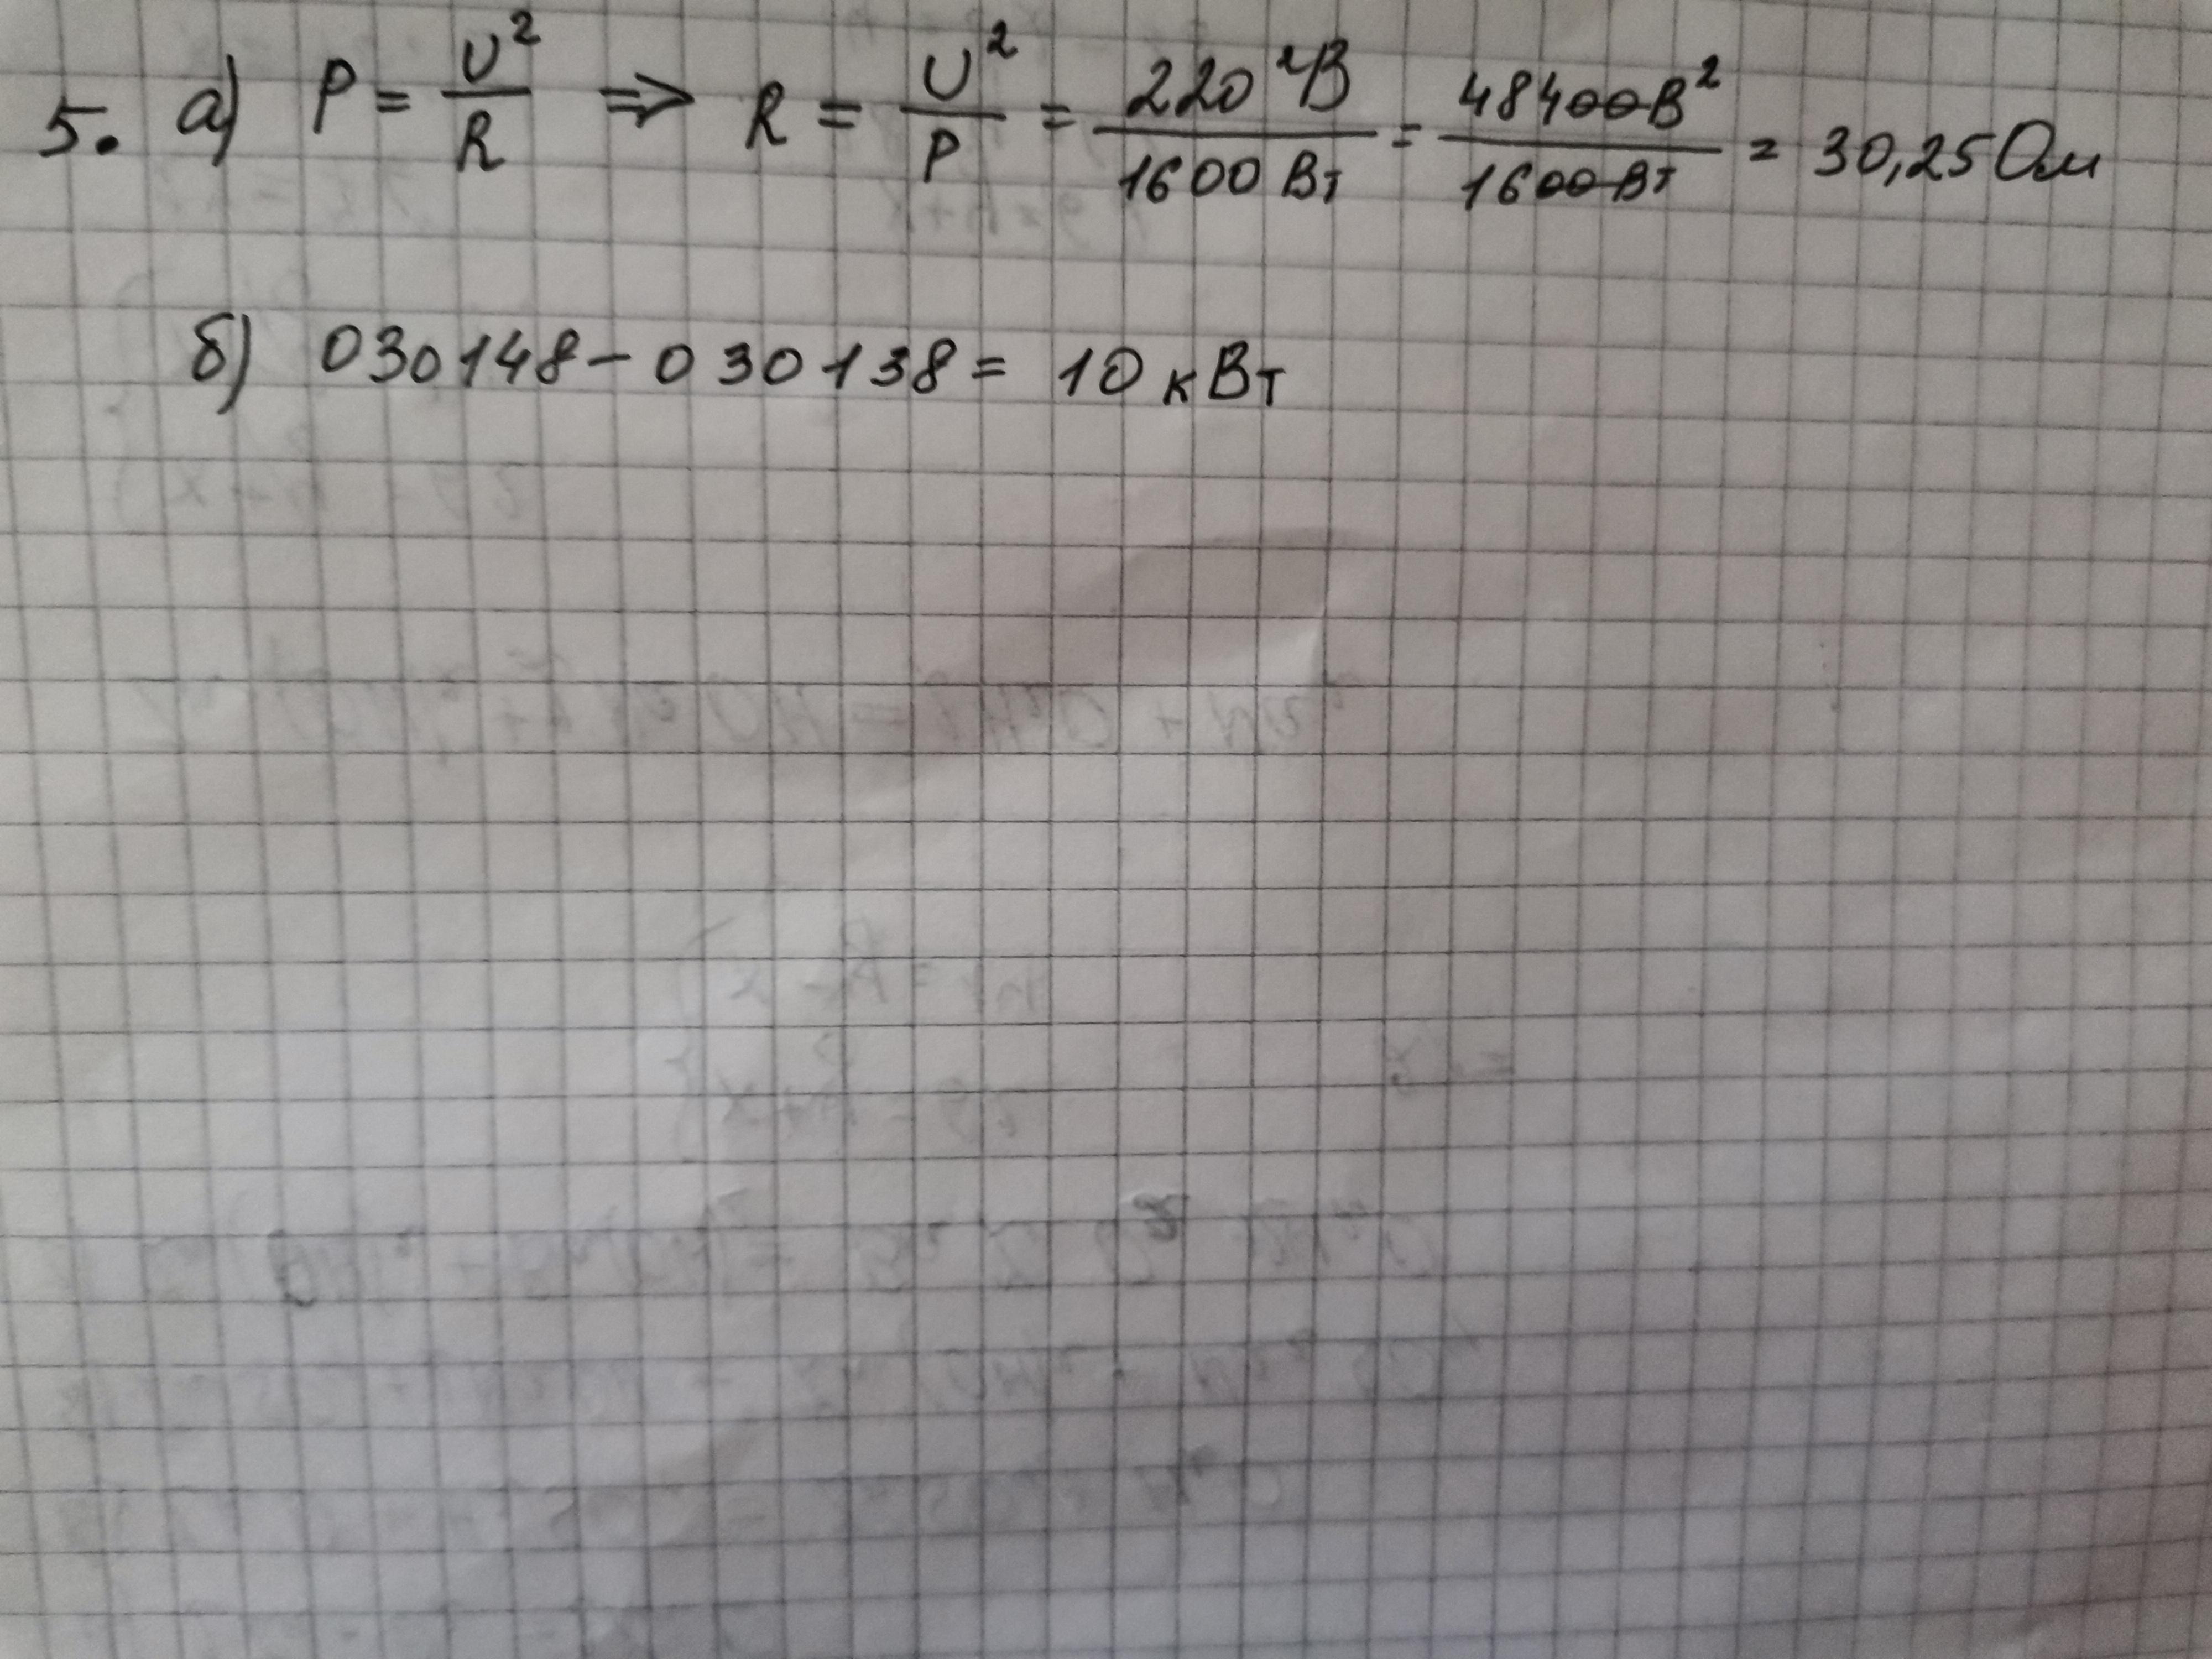 5. а) P = U²/R ⇒ R = U²/P = 220²В/1600 Вт = 48400В²/1600Вт = 30,25 Ом
б) 030148 - 030138 = 10 кВт